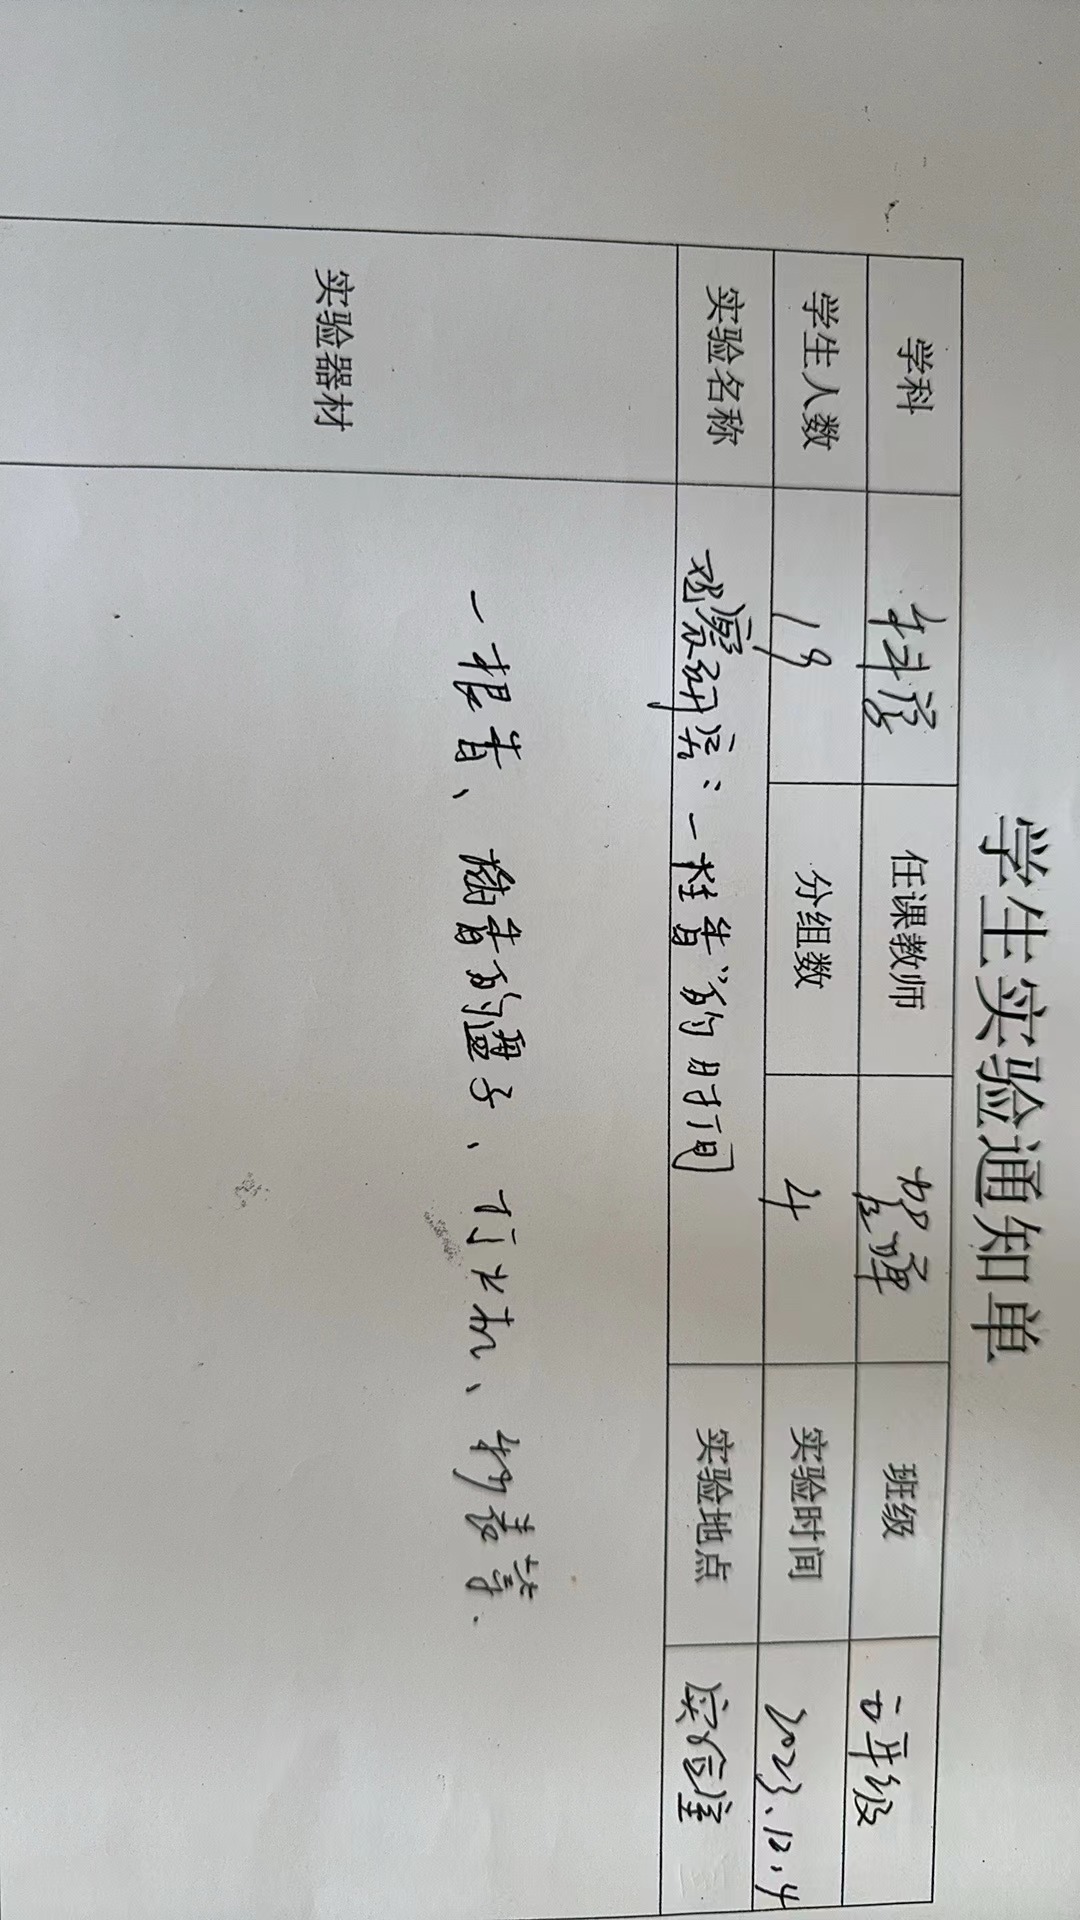 学生实验通知单
学科 科学 任课教师 班级 六年级
学生人数 19 分组数 4 实验时间 2023.12.4
实验名称 观察研究：一柱香”的时间 实验地点 实验室
实验器材 一根香、插香的盘子、打火机、钟表等.